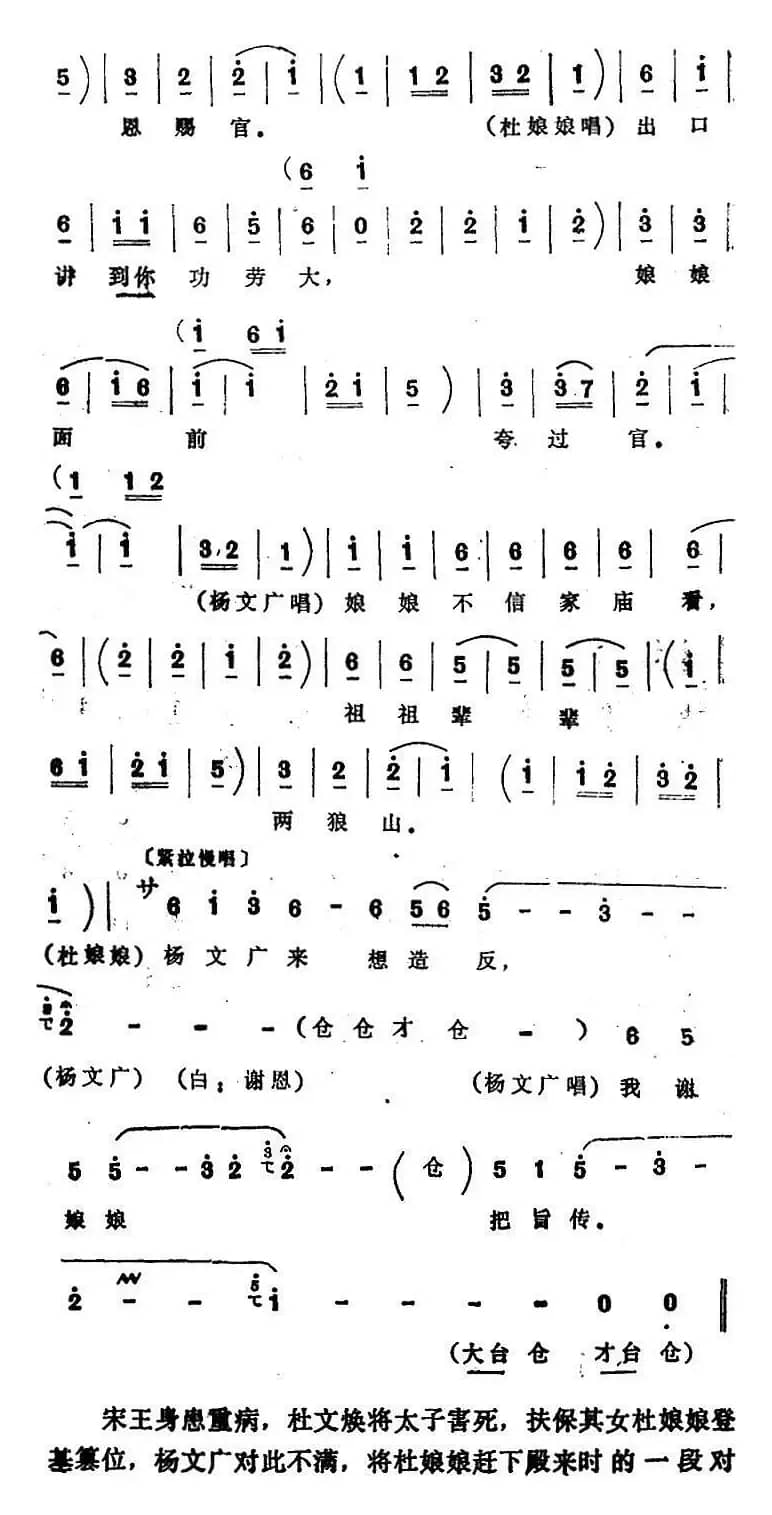 5) | 3 | 2 | 2 | i | (1 | 12 | 32 | 1) | 6 | i |
恩 赐 官。 (杜娘娘唱) 出 口
(6 i
6 | i i | 6 | 5 | 6 | 0 | 2 | 2 | i | 2) | 3 | 3 |
讲 到你 功 劳 大, 娘 娘
(i 6 i
6 | i 6 | i | i | 2 i | 5 ) | 3 | 3 7 | 2 | i |
面 前 夸 过 官。
(1 1 2
i | i | 3 2 | 1 ) | i | i | 6 | 6 | 6 | 6 | 6 |
(杨文广唱) 娘 娘 不 信 家 庙 看,
6 | (2 | 2 | i | 2) | 6 | 6 | 5 | 5 | 5 | 5 | (i |
祖 祖 辈 辈
6 i | 2 i | 5) | 3 | 2 | 2 | i | (i | i 2 | 3 2 |
两 狼 山。
〔紧拉慢唱〕
i ) | サ 6 i 3 6 - 6 5 6 5 - - 3 - -
(杜娘娘) 杨 文 广 来 想 造 反,
2 - - - (仓 仓 才 仓 - ) 6 5
(杨文广) (白: 谢恩) (杨文广唱) 我 谢
5 5 - - 3 2 3 2 - - (仓) 5 1 5 - 3 -
娘 娘 把 旨 传。
2 - - 5 i - - - - 0 0
(大台 仓 才台 仓)
宋王身患重病, 杜文焕将太子害死, 扶保其女杜娘娘登
基篡位, 杨文广对此不满, 将杜娘娘赶下殿来时的一段对